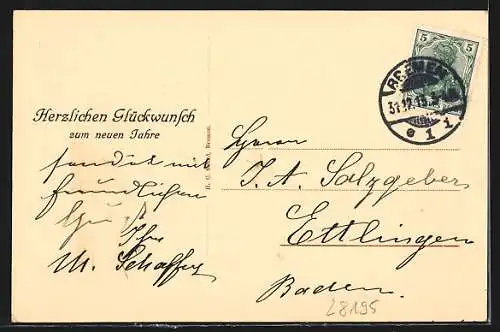 Herzlichen Glückwunsch
zum neuen Jahre
sendet mit
freundlichen
Ihr
M. Schaffer
5 5
BREMEN
31.12.13.
e 1 1
Herrn
J. A. Salzgeber
Ettlingen
Baden.
L8195